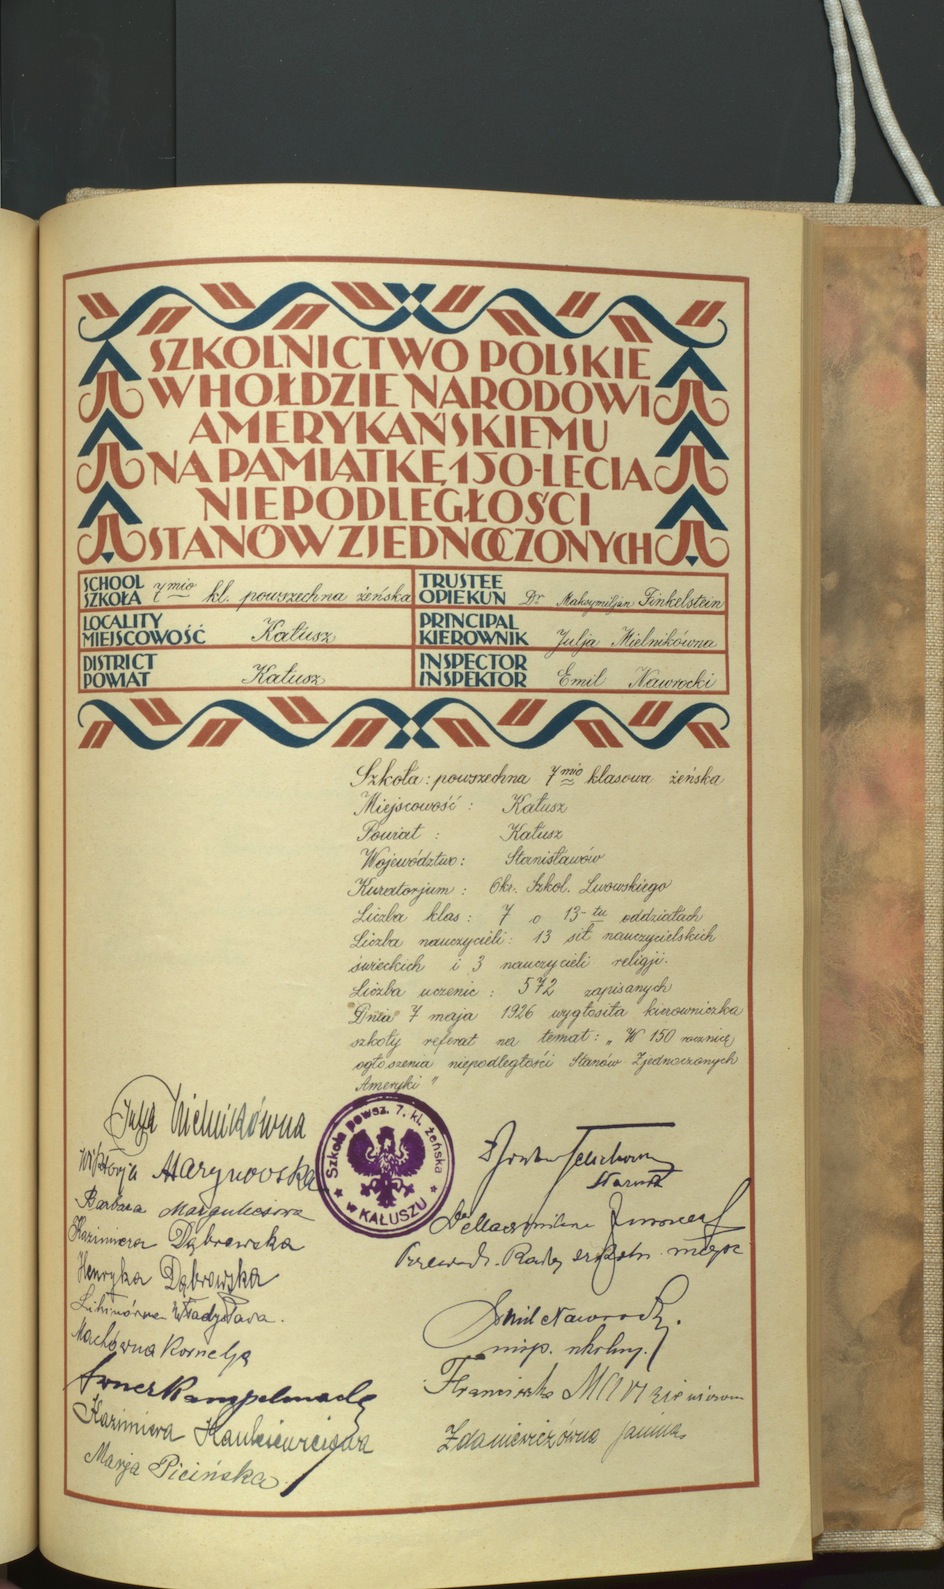 SZKOLNICTWO POLSKIE
W HOŁDZIE NARODOWI
AMERYKAŃSKIEMU
NA PAMIĄTKĘ 150-LECIA
NIEPODLEGŁOŚCI
STANÓW ZJEDNOCZONYCH
SCHOOL SZKOŁA 7mio kl. powszechna żeńska
TRUSTEE OPIEKUN Dr Maksymiljan Finkelstein
LOCALITY MIEJSCOWOŚĆ Kałusz
PRINCIPAL KIEROWNIK Julja Mielnikówna
DISTRICT POWIAT Kałusz
INSPECTOR INSPEKTOR Emil Nawrocki
Szkoła: powszechna 7mio klasowa żeńska
Miejscowość: Kałusz
Powiat: Kałusz
Województwo: Stanisławów
Kuratorjum: Okr. Szkol. Lwowskiego
Liczba klas: 7 o 13-tu oddziałach
Liczba nauczycieli: 13 sił nauczycielskich
świeckich i 3 nauczycieli religji.
Liczba uczenic: 572 zapisanych
Dnia 7 maja 1926 wygłosiła kierowniczka
szkoły referat na temat: „W 150 rocznicę
ogłoszenia niepodległości Stanów Zjednoczonych
Ameryki"
Szkoła powsz. 7. kl. żeńska
w KAŁUSZU
Julja Mielnikówna
Wiktorja Marynowska
Barbara Margulesowa
Kazimiera Dąbrowska
Henryka Dąbrowska
Władysława
Machówna Kornelja
Kazimiera
Marja Picińska
Starosta
Emil Nawrocki
insp. szkolny
Franciszka
Zdaniewiczówna Janina